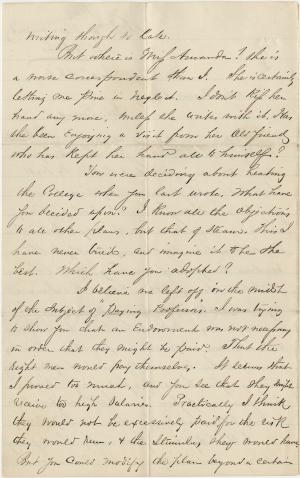 writing though so late.
But where is Miss Amanda? She is
a worse correspondent than I. She is certainly
letting me pine in neglect. I don't kiss her
hand any more, unless she writes with it. Has
she been enjoying a visit from her old friend,
who has kept her hand all to himself?
You were deciding about heating
the College when you last wrote. What have
you decided upon? I know all the objections
to all other plans, but that of Steam. This I
have never tried, and imagine it to be the
best. Which have you adopted?
I believe we left off in the midst
of the subject of "Paying Professors." I was trying
to show you that an Endowment was not necessary
in order that they might be paid. That the
right men would pay themselves. It seems that
I proved too much, and you see that they might
receive too high salaries. Practically, I think
they would not be excessively paid for the risk
they would run, & the stimulus they would have.
But you could modify the plan beyond a certain